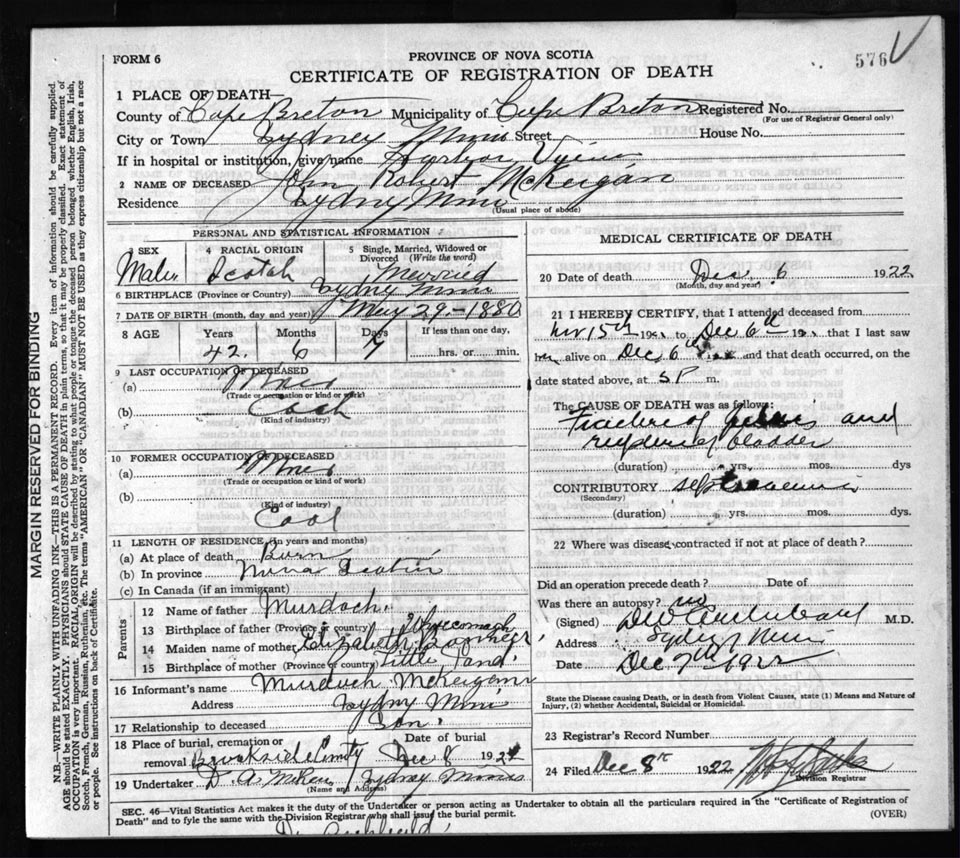 FORM 6
PROVINCE OF NOVA SCOTIA
CERTIFICATE OF REGISTRATION OF DEATH
576
1 PLACE OF DEATH—
County of Cape Breton Municipality of Cape Breton Registered No.
(For use of Registrar General only)
City or Town Sydney Mines Street House No.
If in hospital or institution, give name
2 NAME OF DECEASED John Robert McKeigan
Residence Sydney Mines
(Usual place of abode)
PERSONAL AND STATISTICAL INFORMATION
3 SEX Male
4 RACIAL ORIGIN Scotch
5 Single, Married, Widowed or Divorced (Write the word) Married
6 BIRTHPLACE (Province or Country) Sydney Mines
7 DATE OF BIRTH (month, day and year) May 29 - 1880
8 AGE Years Months Days If less than one day,
42. 6 7 hrs. or min.
9 LAST OCCUPATION OF DECEASED
(a)
(Trade or occupation or kind of work)
(b)
(Kind of industry)
10 FORMER OCCUPATION OF DECEASED
(a)
(Trade or occupation or kind of work)
(b)
(Kind of industry)
11 LENGTH OF RESIDENCE (in years and months)
(a) At place of death Born
(b) In province Nova Scotia
(c) In Canada (if an immigrant)
Parents
12 Name of father Murdoch.
13 Birthplace of father (Province or country) Whycocomagh
14 Maiden name of mother Elizabeth
15 Birthplace of mother (Province or country) Little Pond.
16 Informant's name Murdoch McKeigan
Address Sydney Mines
17 Relationship to deceased Son.
18 Place of burial, cremation or
removal Brookside Dec 8 192
19 Undertaker D. A. Sydney Mines
(Name and Address)
MEDICAL CERTIFICATE OF DEATH
20 Date of death Dec. 6 1922
(Month, day and year)
21 I HEREBY CERTIFY, that I attended deceased from
Nov 15th 192 to Dec 6th 192 that I last saw
him alive on Dec 6 and that death occurred, on the
date stated above, at 5 P m.
The CAUSE OF DEATH was as follows:
Fracture of pelvis and
rupture of bladder
(duration) yrs. mos. dys
CONTRIBUTORY
(Secondary)
(duration) yrs. mos. dys.
22 Where was disease contracted if not at place of death?
Did an operation precede death? Date of
Was there an autopsy? no
(Signed) M.D.
Address Sydney Mines
Date Dec 7th 1922
State the Disease causing Death, or in death from Violent Causes, state (1) Means and Nature of
Injury, (2) whether Accidental, Suicidal or Homicidal.
23 Registrar's Record Number
24 Filed Dec 8th 1922
Division Registrar
SEC. 46—Vital Statistics Act makes it the duty of the Undertaker or person acting as Undertaker to obtain all the particulars required in the "Certificate of Registration of
Death" and to fyle the same with the Division Registrar who shall issue the burial permit.
(OVER)
MARGIN RESERVED FOR BINDING
N.B.—WRITE PLAINLY WITH UNFADING INK—THIS IS A PERMANENT RECORD. Every item of information should be carefully supplied.
AGE should be stated EXACTLY. PHYSICIANS should STATE CAUSE OF DEATH in plain terms, so that it may be properly classified. Exact statement of
OCCUPATION is very important. RACIAL ORIGIN will be described by stating to what people or tongue the deceased person belonged whether English, Irish,
Scotch, French, German, Russian, Ruthenian, etc. The terms "AMERICAN" or "CANADIAN" MUST NOT BE USED as they express citizenship but not a race
or people. See instructions on back of Certificate.